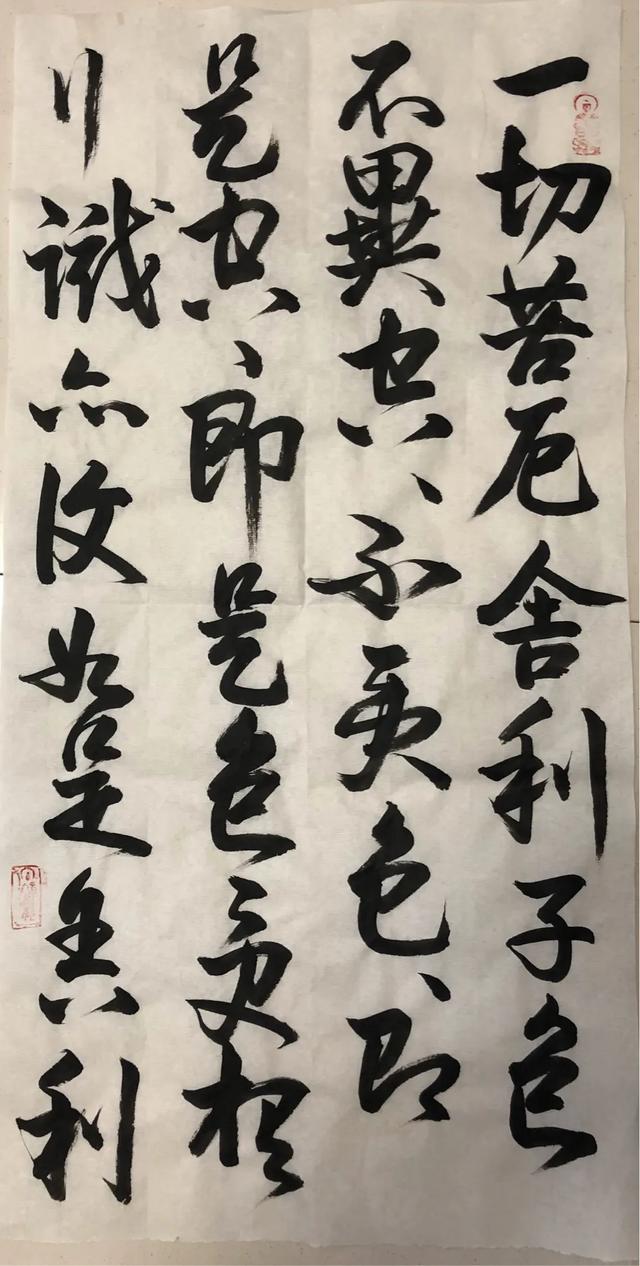 一切苦厄舍利子色
不異空、不異色、即
是空、即是色受想
行識亦復如是舍利